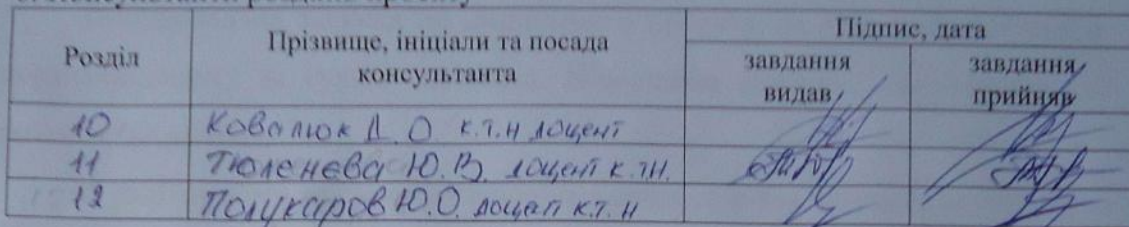 Розділ Прізвище, ініціали та посада консультанта Підпис, дата
завдання видав завдання прийняв
10 Ковалюк Д. О. к.т.н доцент
11 Тюленєва Ю.В. доцент к.т.н.
12 Полукаров Ю.О. доцент к.т.н